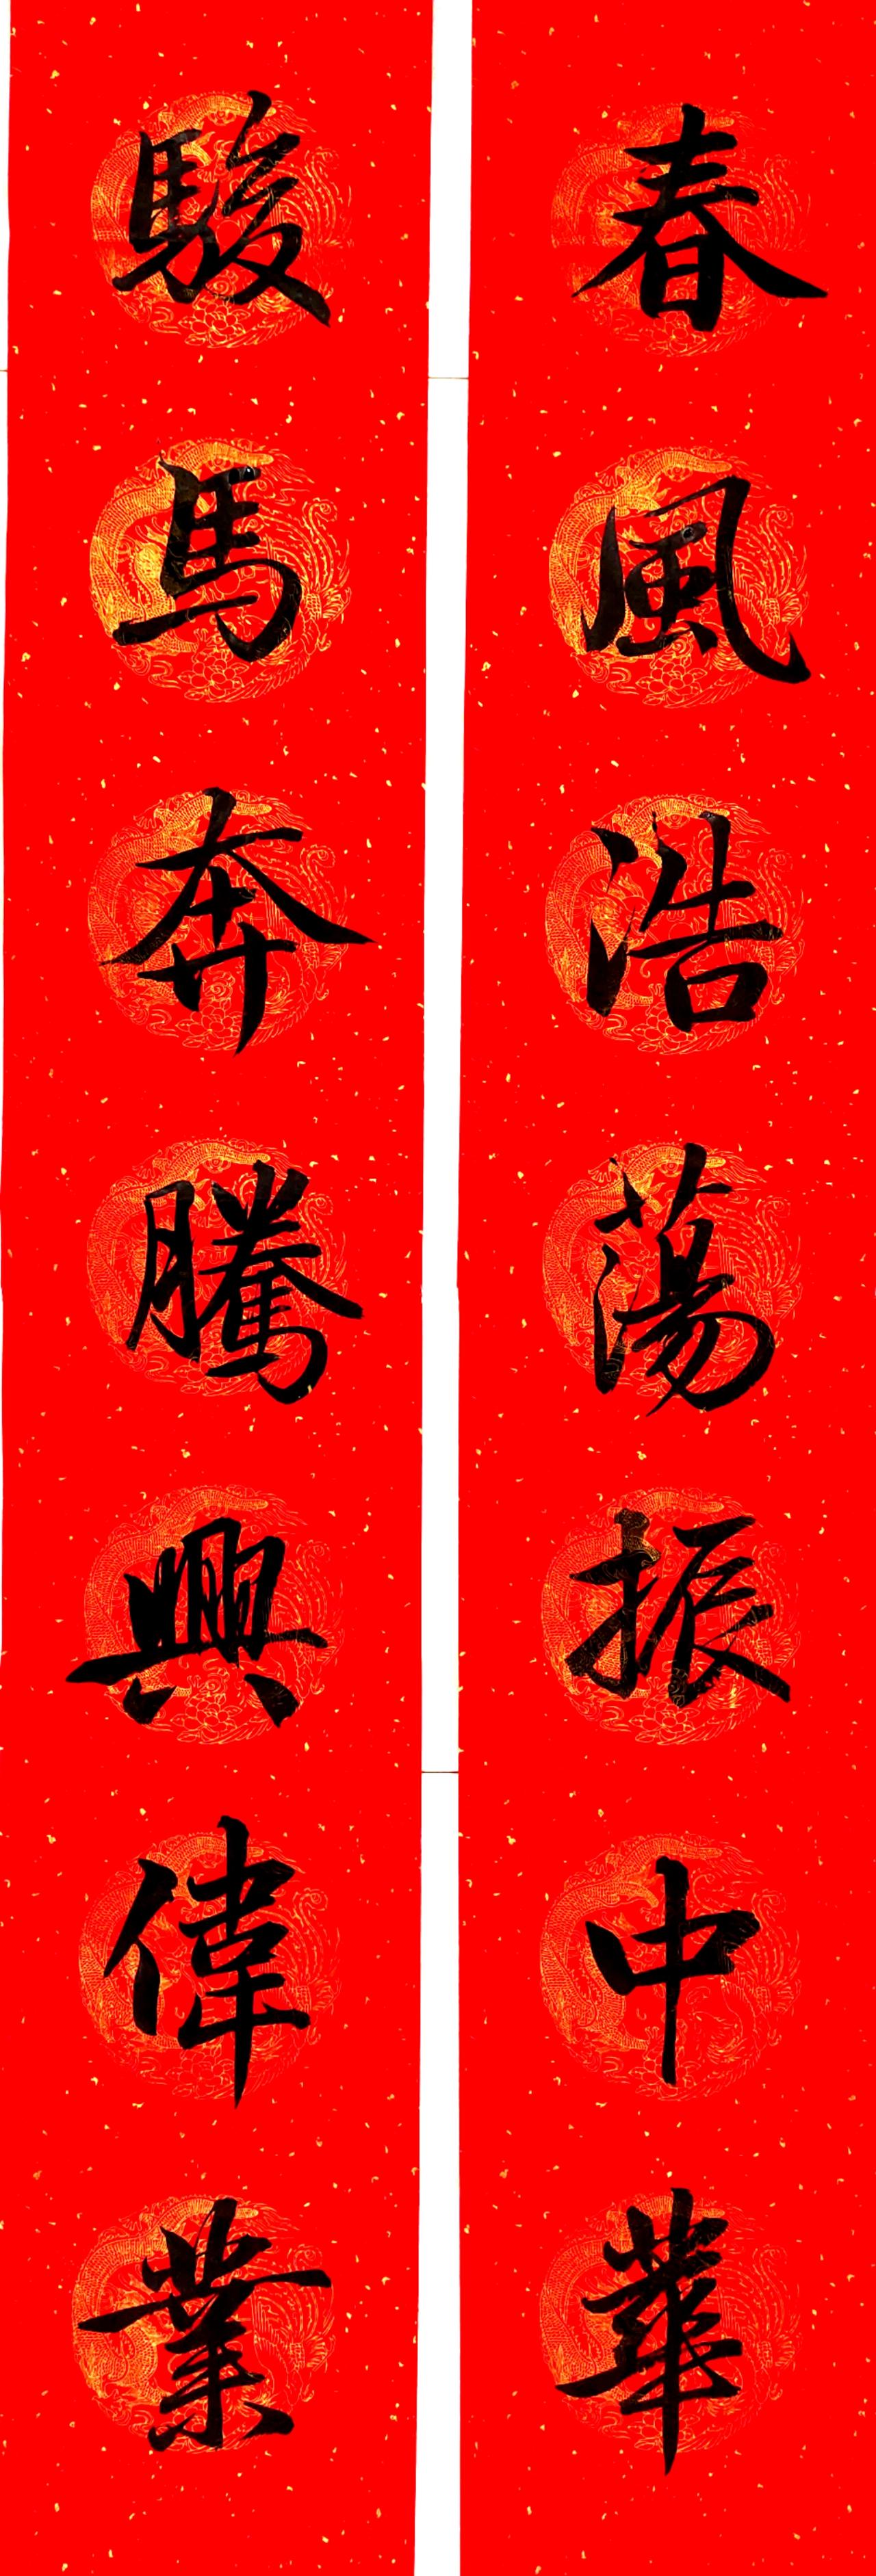 春風浩蕩振中華
駿馬奔騰興偉業